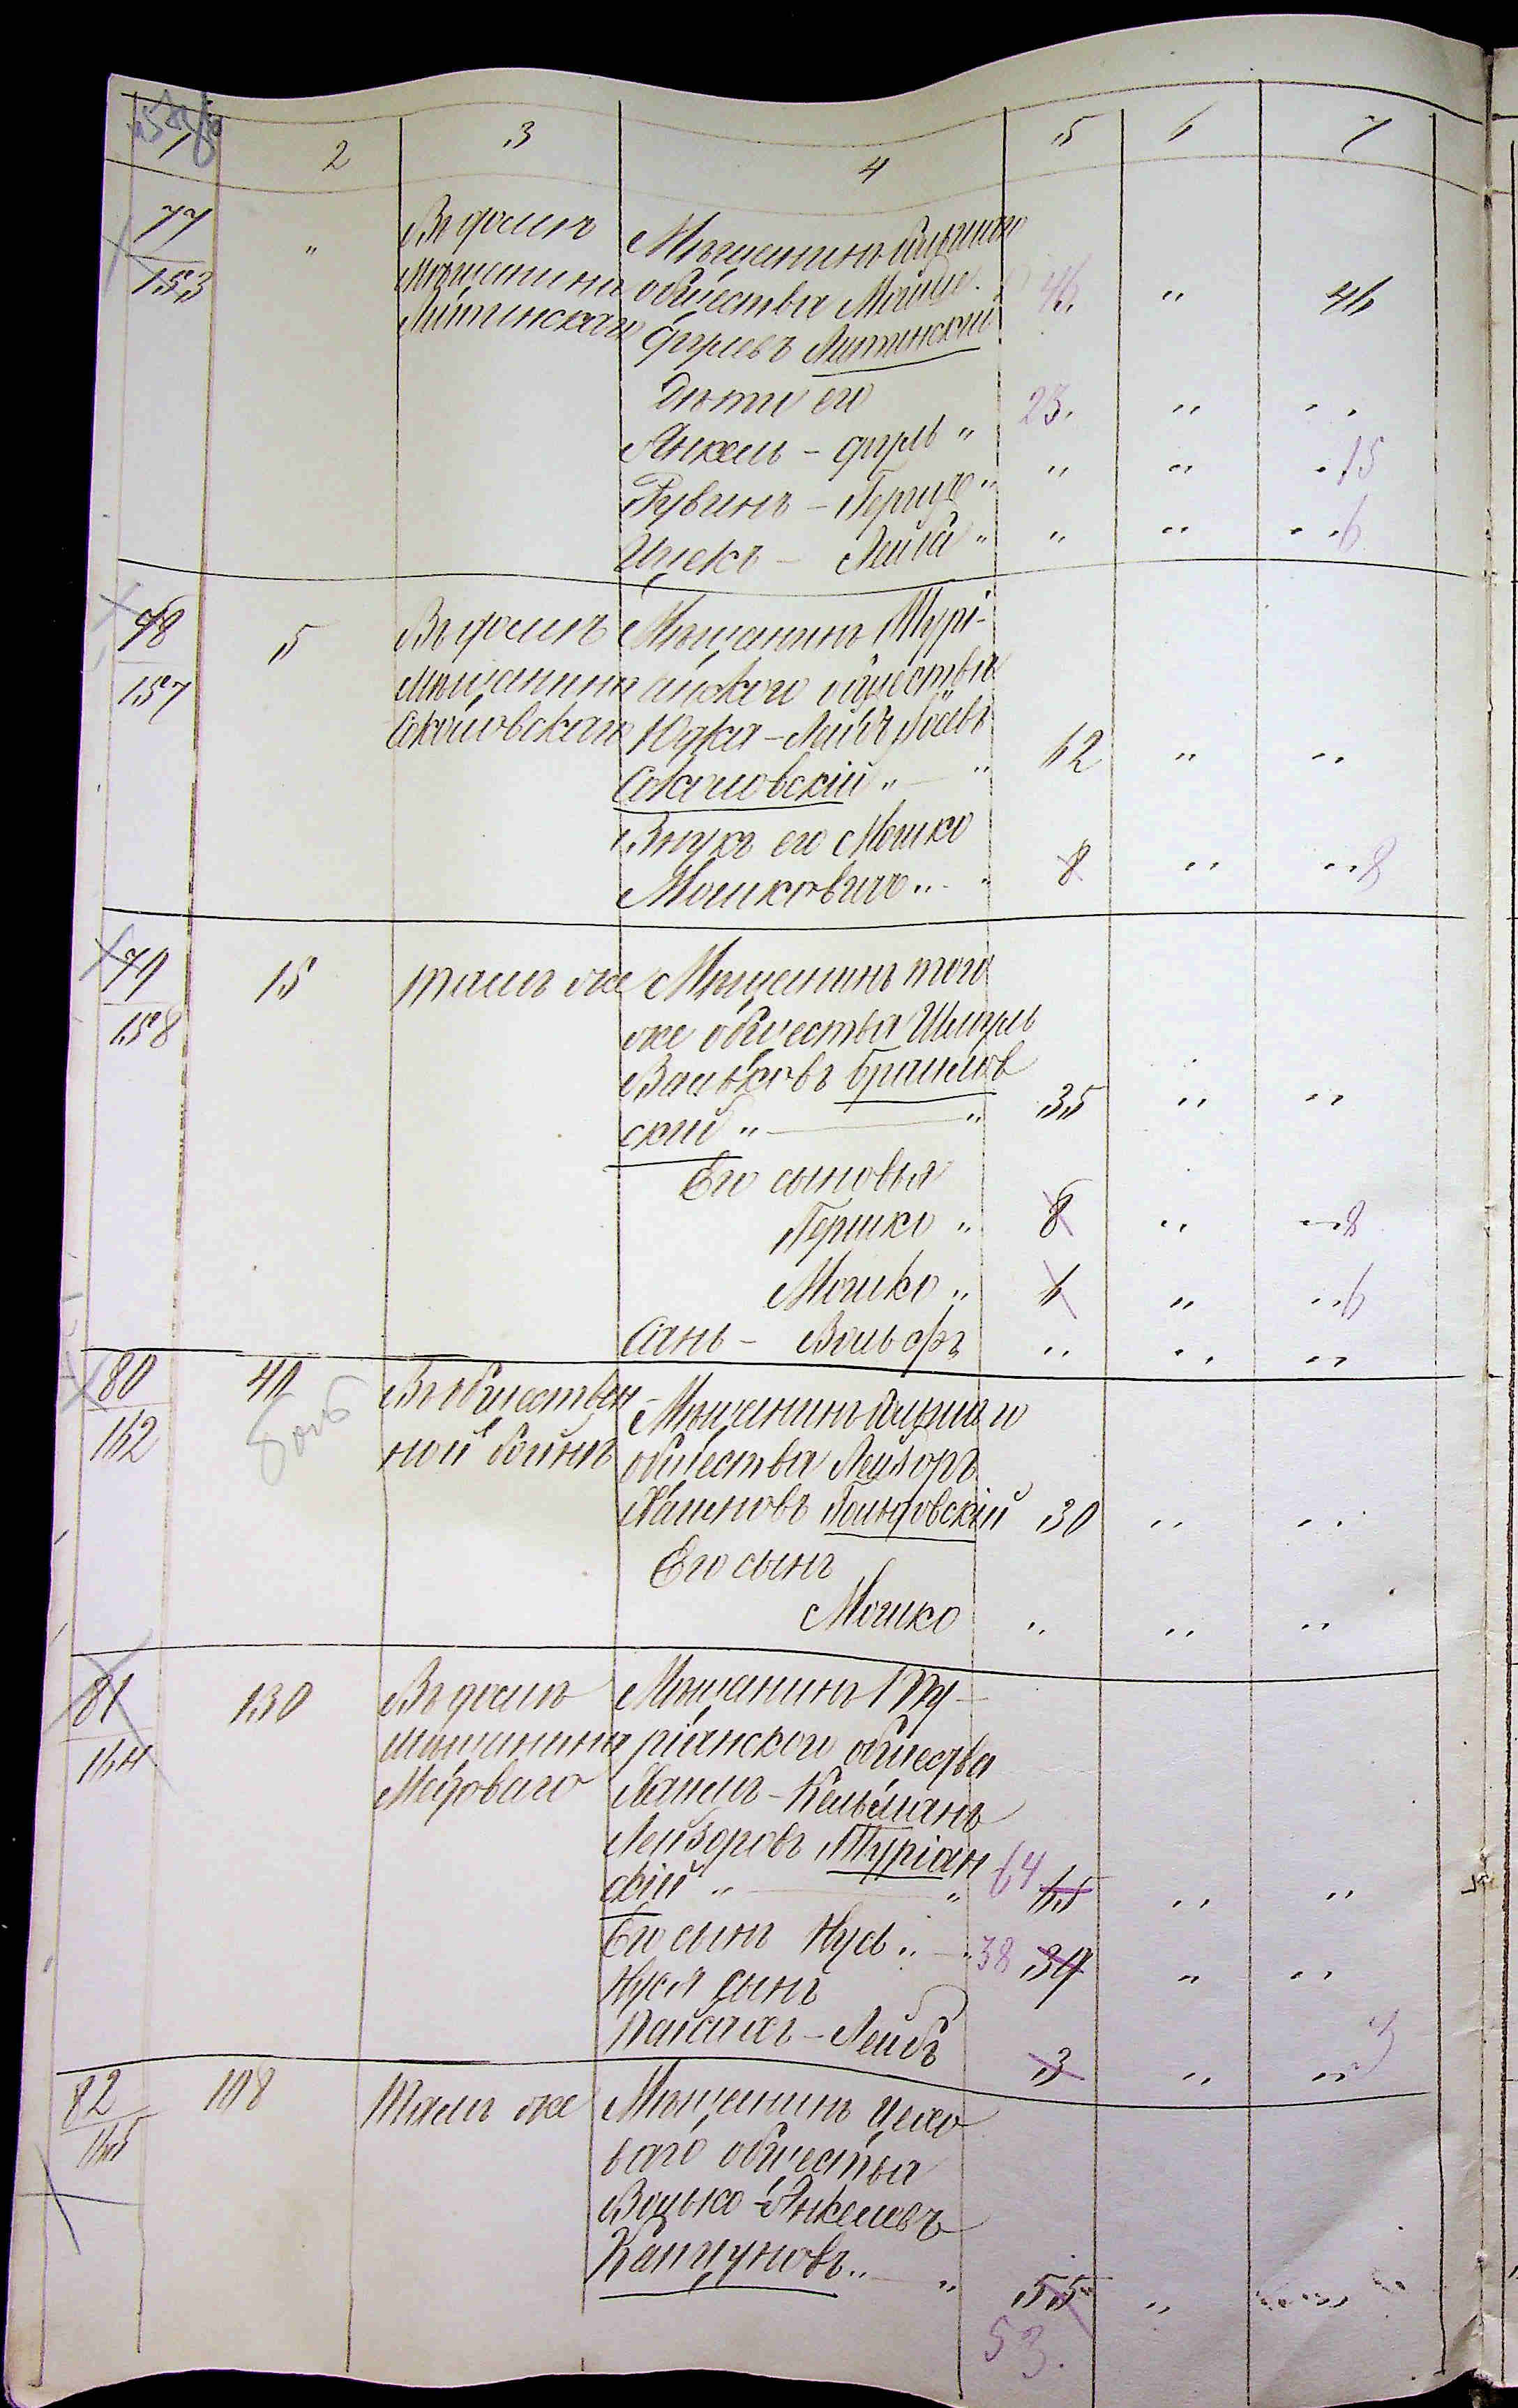 1 2 3 4 5 6 7
77
153
"
Въ домѣ
Мѣщанина
Литинскаго
Мѣщанинъ
общества Мошко
Сруловъ Литинскій
46 " 46
Дѣти его
23. " "
Янкель - Сруль "
" " 15
Рувинъ - Гершъ "
" " 6
Ицекъ - Лейба "
78
157
5
Въ домѣ
Мѣщанина
Соколовскаго
Мѣщанинъ Турі-
анскаго общества
Юдка - Лейбъ
Соколовскій " "
62 " "
Внукъ его Мошко
Мошковичъ " "
8 " " 8
79
158
15
тамъ же
Мѣщанинъ того
же общества Шмуль
Вольковъ Браилов
скій " "
35 " "
Его сыновья
Гершко "
8 " " 8
Мошко "
6 " " 6
Сань - Вольфъ
" " "
80
162
40
Въ обществен
ной банѣ
Мѣщанинъ
общества Лейзоръ
Хаимовъ
30 " "
Его сынъ
Мошко
" " "
81
164
130
Въ домѣ
мѣщанина
Медоваго
Мѣщанинъ Ту-
ріанскаго общества
Хаимъ - Кельманъ
Лейзоровъ Туріан
скій " "
64 65 " "
Его сынъ Нусь " "
38 39 " "
Нуся сынъ
Пайсахъ - Лейбъ
3 " " 3
82
165
108
Тамъ же
Мѣщанинъ Цехо
ваго общества
Волько - Янкелевъ
Капцуновъ " "
55 " "
53.